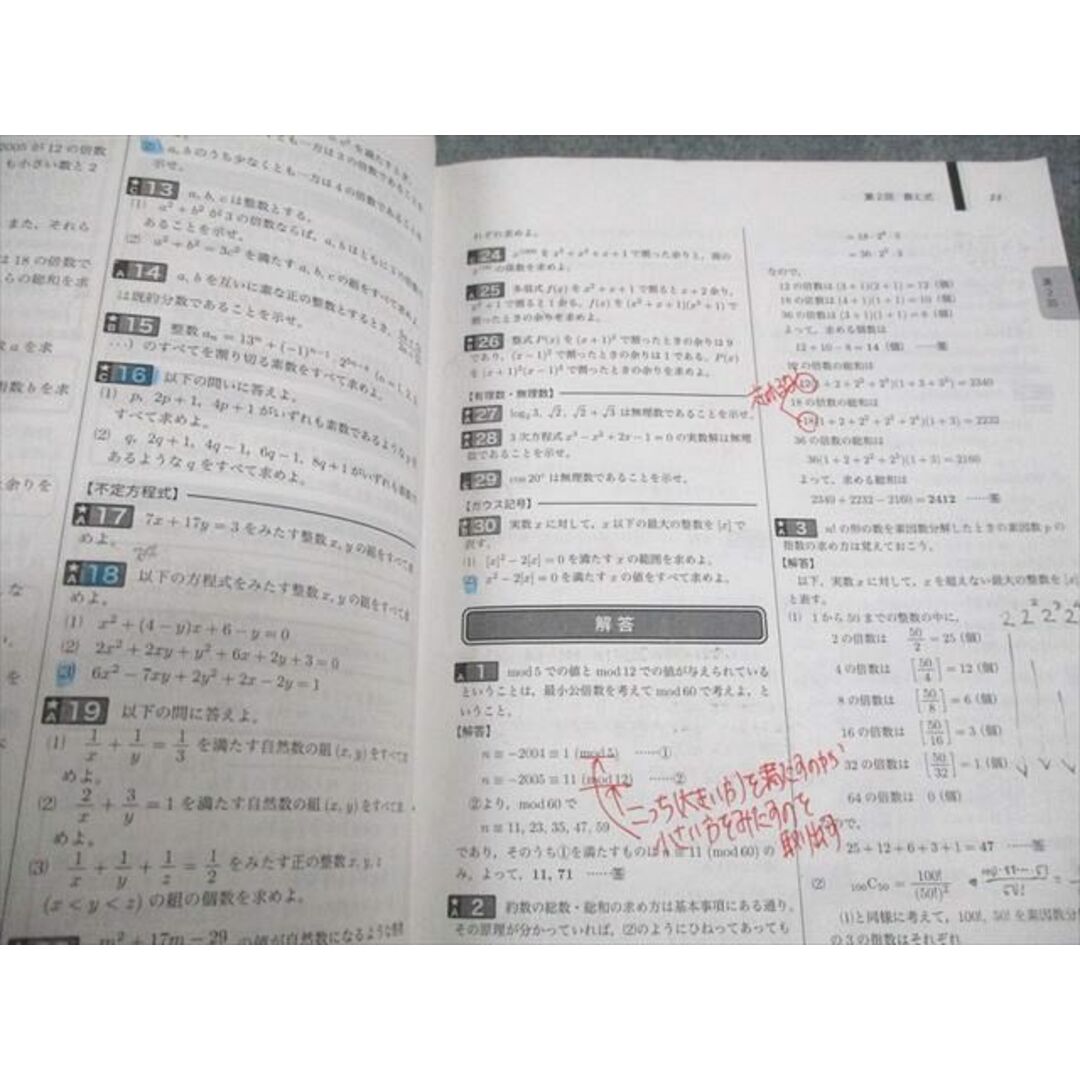 2005 が 12 の倍数
も小さい数と 2
また，それら
は 18 の倍数で
らの総和を求
数 a を求
数 b を求
余りを
a, b のうち少なくとも一方は 4 の倍数であること
示せ．
13 a, b, c は整数とする．
(1) a² + b² が 3 の倍数ならば，a, b はともに 3 の倍数で
あることを示せ．
(2) a² + b² = 3c² を満たす a, b, c の組をすべて求めよ．
14 a, b を互いに素な正の整数とするとき，
は既約分数であることを示せ．
15 整数 aₙ = 13ⁿ + (−1)ⁿ⁻¹
…) のすべてを割り切る素数をすべて求めよ．
16 以下の問いに答えよ．
(1) p, 2p + 1, 4p + 1 がいずれも素数であるような p を
すべて求めよ．
(2) q, 2q + 1, 4q − 1, 6q − 1, 8q + 1 がいずれも素数で
あるような q をすべて求めよ．
【不定方程式】
17 7x + 17y = 3 をみたす整数 x, y の組をすべて求
めよ．
18 以下の方程式をみたす整数 x, y の組をすべて求
めよ．
(1) x² + (4 − y)x + 6 − y = 0
(2) 2x² + 2xy + y² + 6x + 2y + 3 = 0
(3) 6x² − 7xy + 2y² + 2x − 2y = 1
19 以下の問に答えよ．
(1) 1/x + 1/y = 1/3 を満たす自然数の組 (x, y) をすべて求
めよ．
(2) 2/x + 3/y = 1 を満たす自然数の組 (x, y) をすべて求
めよ．
(3) 1/x + 1/y + 1/z = 1/2 をみたす正の整数 x, y, z
(x < y < z) の組の個数を求めよ．
m² + 17m − 29 の値が自然数になるような整数
れぞれ求めよ．
24 を x³ + x² + x + 1 で割った余りと，商の
の係数を求めよ．
25 多項式 f(x) を x² + x + 1 で割ると x + 2 余り，
x² + 1 で割ると 1 余る．f(x) を (x² + x + 1)(x² + 1) で
割ったときの余りを求めよ．
26 整式 P(x) を (x + 1)² で割ったときの余りは 9
であり，(x − 1)² で割ったときの余りは 1 である．P(x)
を (x + 1)²(x − 1)² で割ったときの余りを求めよ．
【有理数・無理数】
27 log₂ 3, √2, √2 + √3 は無理数であることを示せ．
28 3 次方程式 x³ − x² + 2x − 1 = 0 の実数解は無理
数であることを示せ．
29 cos 20° は無理数であることを示せ．
【ガウス記号】
30 実数 x に対して，x 以下の最大の整数を [x] で
表す．
(1) [x]² − 2[x] = 0 を満たす x の範囲を求めよ．
(2) x² − 2[x] = 0 を満たす x の値をすべて求めよ．
解答
1 mod 5 での値と mod 12 での値が与えられている
ということは，最小公倍数を考えて mod 60 で考えよ，と
いうこと．
【解答】
n ≡ −2004 ≡ 1 (mod 5) ……①
n ≡ −2005 ≡ 11 (mod 12) ……②
②より，mod 60 で
n ≡ 11, 23, 35, 47, 59
であり，そのうち①を満たすものは n ≡ 11 (mod 60) の
み．よって，11, 71 ……答
こっち(大きい方)を満たすのから
小さい方をみたすのを
取り出す
2 約数の総数・総和の求め方は基本事項にある通り．
その原理が分かっていれば，(2)のようにひねってあっても
第 2 回 数と式 21
= 18・2⁰・3
= 36・2⁰・3
なので，
12 の倍数は (3 + 1)(2 + 1) = 12 (個)
18 の倍数は (4 + 1)(1 + 1) = 10 (個)
36 の倍数は (3 + 1)(1 + 1) = 8 (個)
よって，求める個数は
12 + 10 − 8 = 14 (個) ……答
12 の倍数の総和は
12(1 + 2 + 2² + 2³)(1 + 3 + 3²) = 2340
18 の倍数の総和は
18(1 + 2 + 2² + 2³ + 2⁴)(1 + 3) = 2232
36 の倍数の総和は
36(1 + 2 + 2² + 2³)(1 + 3) = 2160
よって，求める総和は
2340 + 2232 − 2160 = 2412 ……答
3 n! の形の数を素因数分解したときの素因数 p の
指数の求め方は覚えておこう．
【解答】
以下，実数 x に対して，x を超えない最大の整数を [x]
と表す．
(1) 1 から 50 までの整数の中に，
2 の倍数は 50/2 = 25 (個)
4 の倍数は [50/4] = 12 (個)
8 の倍数は [50/8] = 6 (個)
16 の倍数は [50/16] = 3 (個)
32 の倍数は [50/32] = 1 (個)
64 の倍数は 0 (個)
ので，
25 + 12 + 6 + 3 + 1 = 47 ……答
2 2² 2³ 2⁴
(2) ₁₀₀C₅₀ = 100!/(50!)²
(1)と同様に考えて，100!, 50! を素因数分
の 3 の指数はそれぞれ
第 2 回